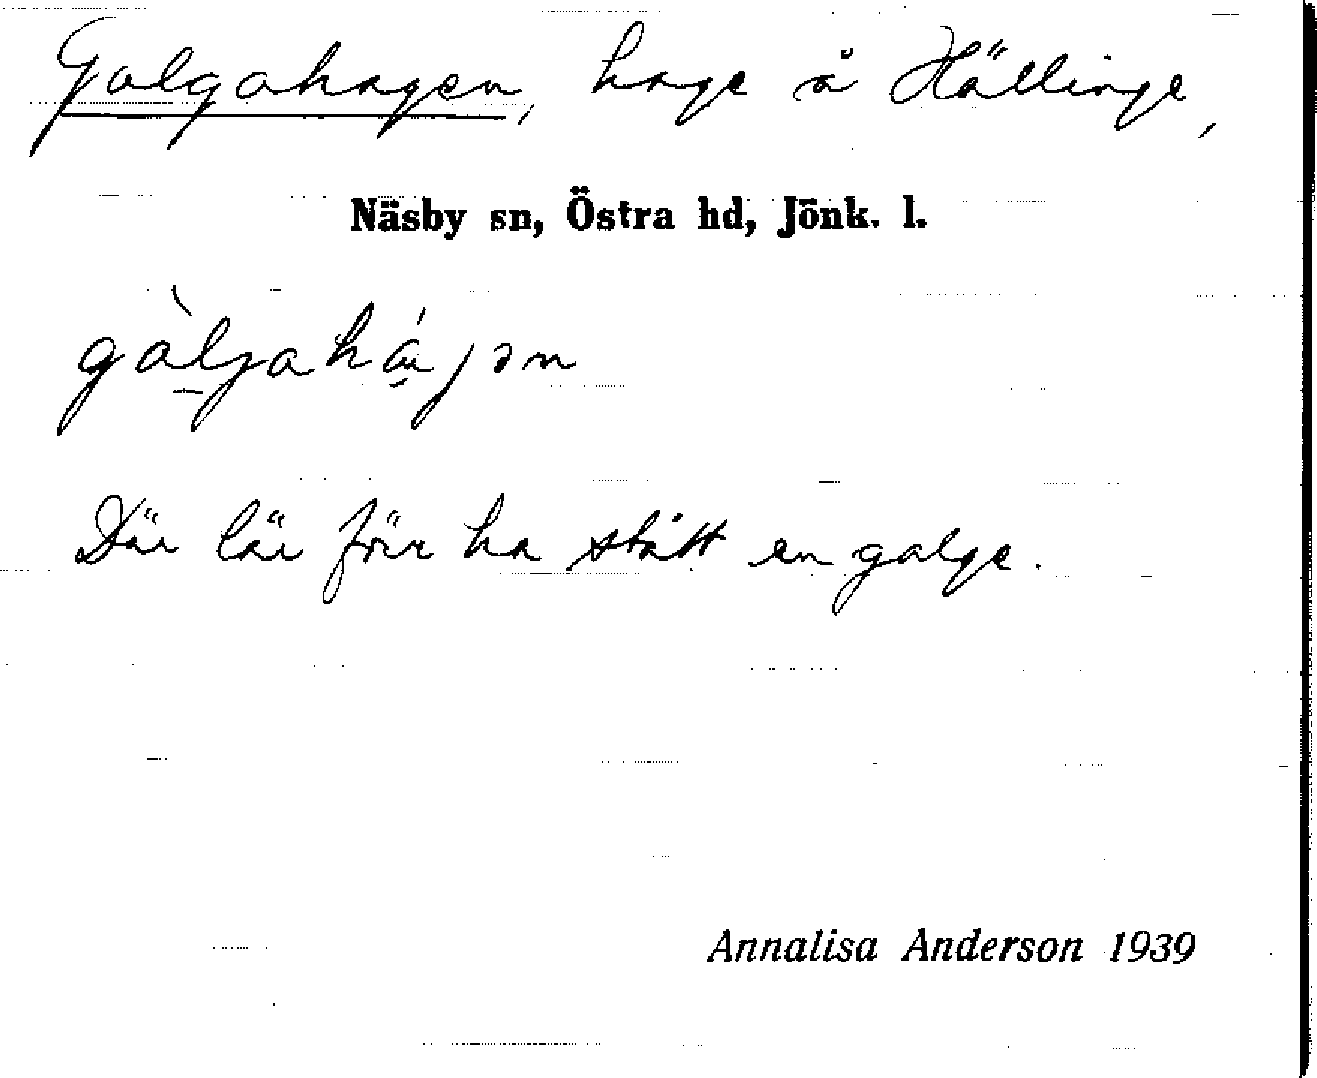 Galgahagen, hage å Hällinge,
Näsby sn, Östra hd, Jönk. l.
gàljaháγən
Där lär förr ha stått en galge.
Annalisa Anderson 1939